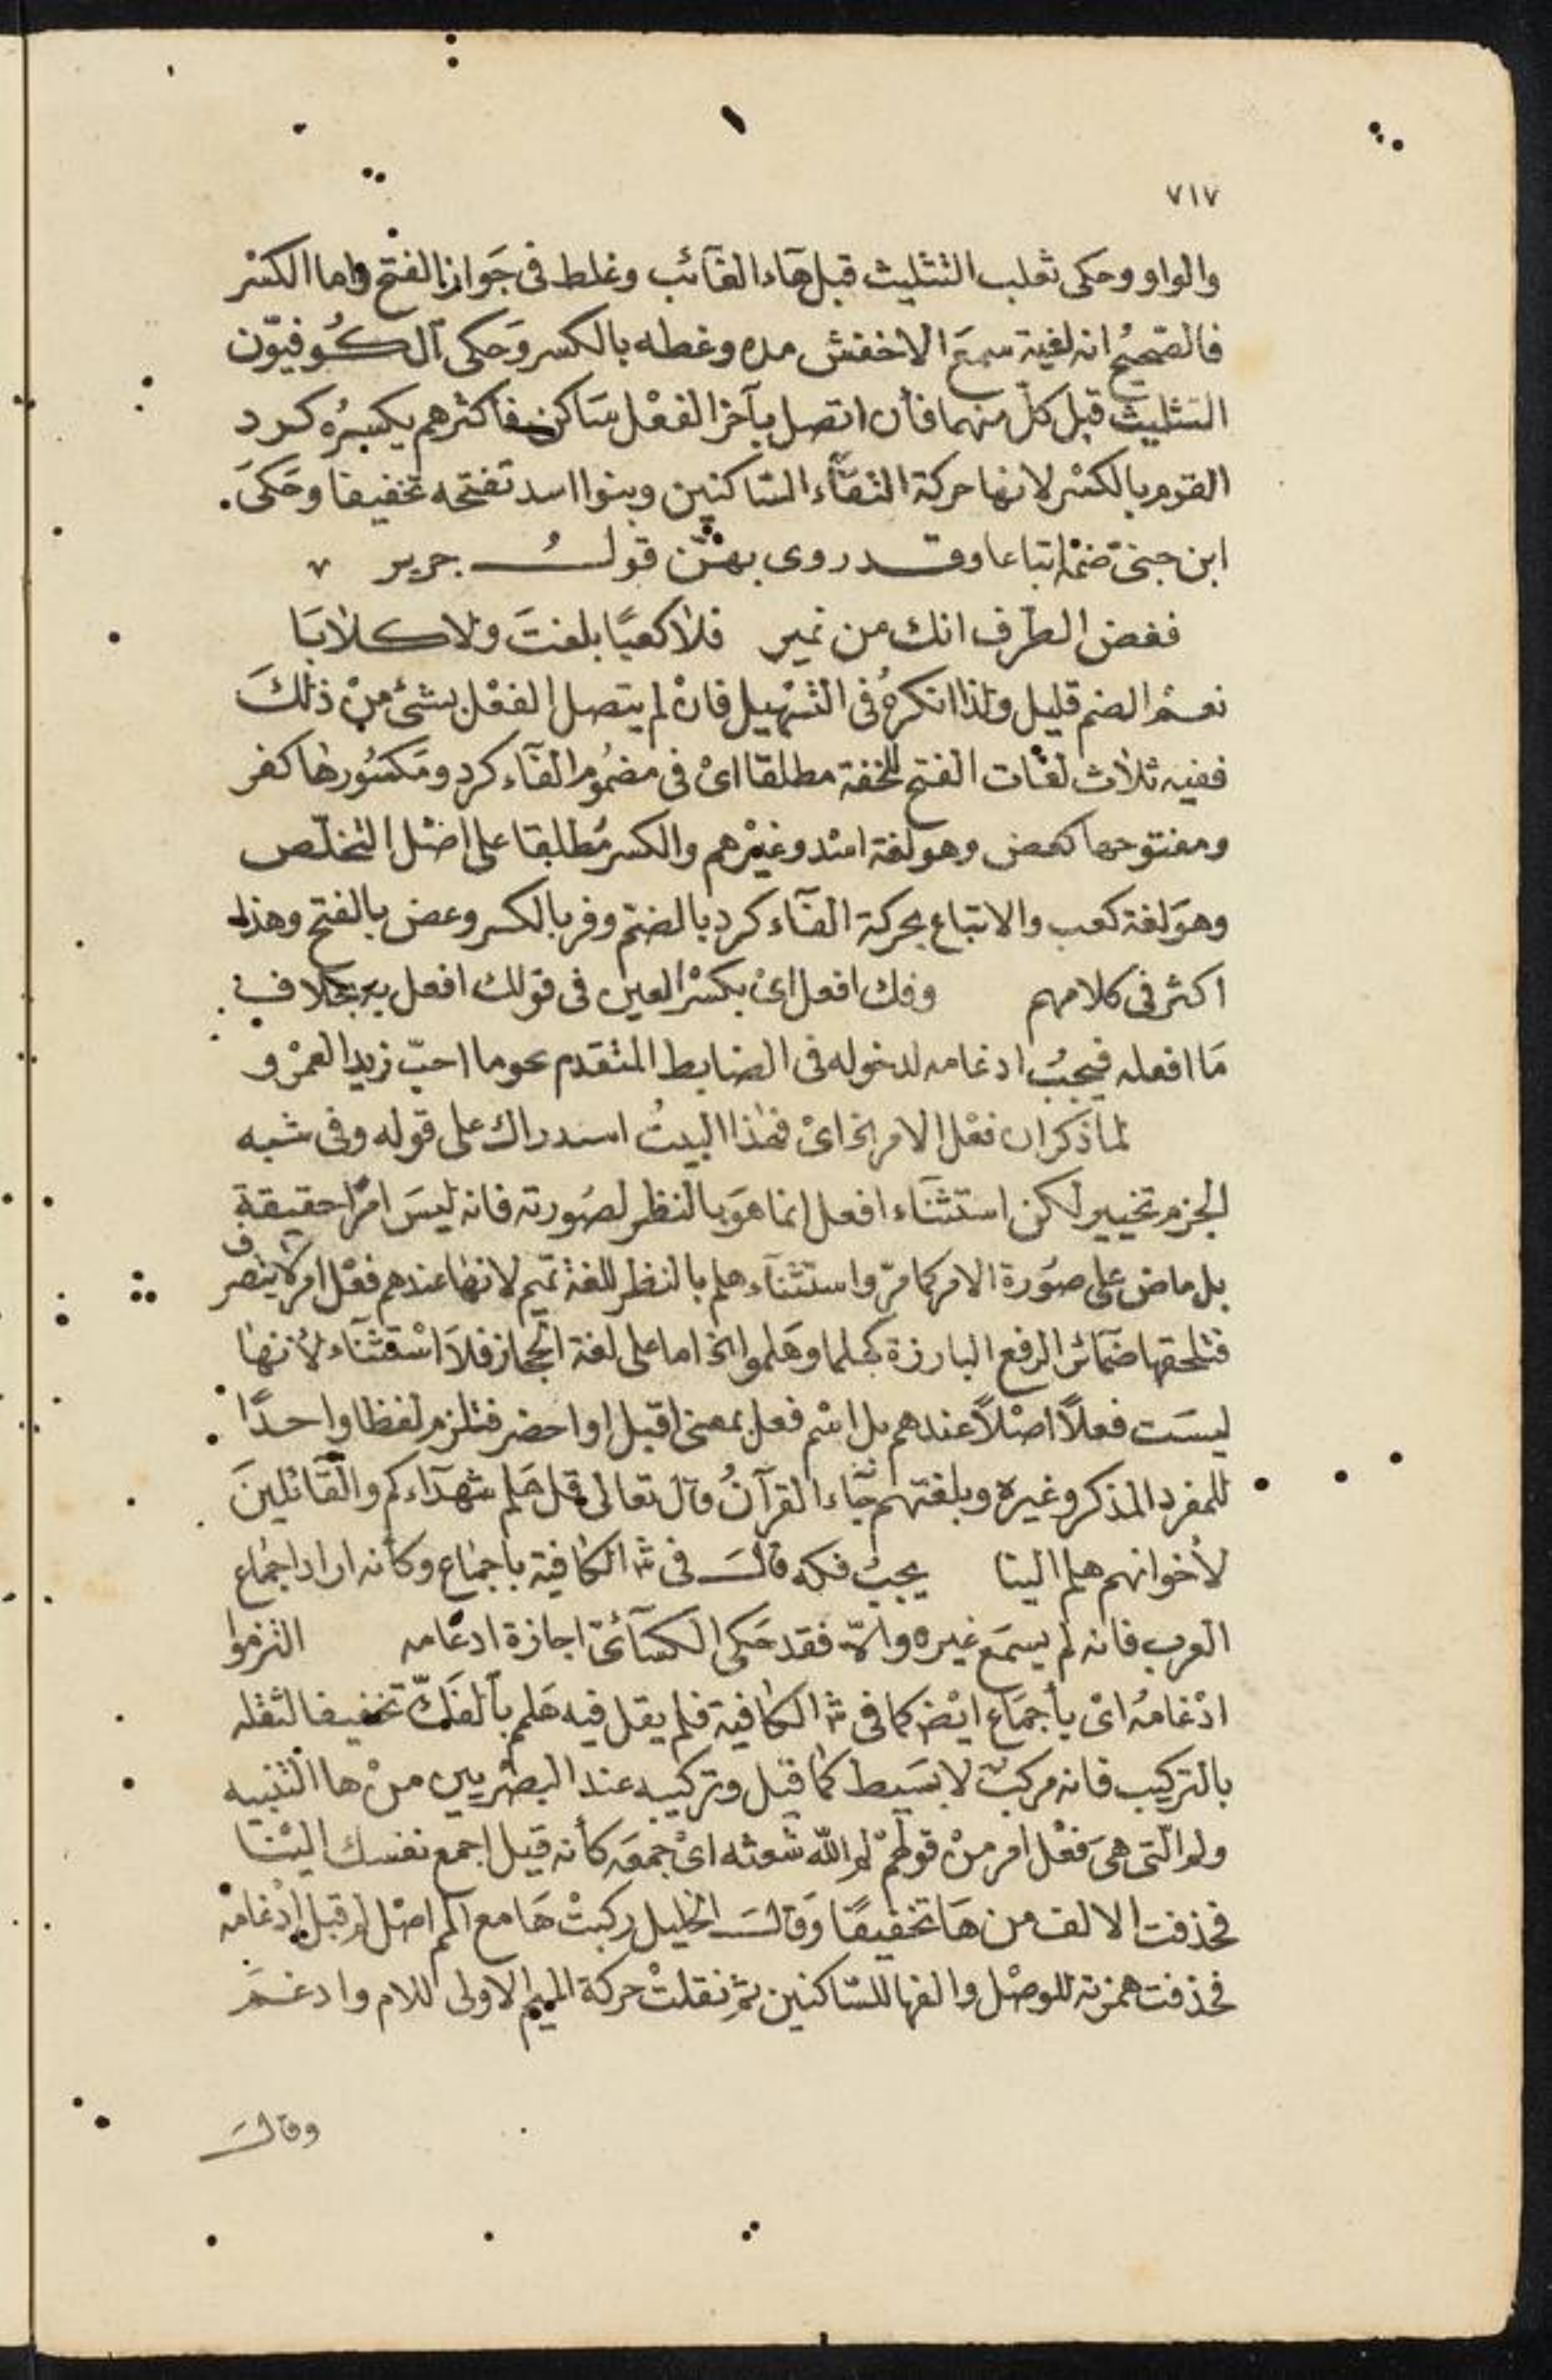 ٧١٧
والواو وحكى ثعلب التثليث قبل هآء الغآئب وغلط فى جَواز الفتح واما الكسْر
فالصّحيحُ انه لغيّة سمعَ الاخفش مده وغطه بالكسر وَحكى الكُوفيّون
التثليث قبل كلّ منهما فأن اتصل بآخر الفعْل سَاكن فاكثرهم يكسِرُه كرد
القوم بالكسْر لانها حركة التقآء السّاكنين وبنوا اسد تفتحه تخفيفا وحَكىَ
ابن جنىّ ضمّه اتباعا وقد روى بهنّ قولُ جرير
فغض الطرف انك من نمير فلا كعبًا بلغتَ ولا كلابَا
نعمْ الضم قليل ولذا انكرهُ فى التسْهيل فانْ لم يتصل الفعْل بشئ منْ ذلكَ
ففيه ثلاث لغات الفتح للخفة مطلقا اىْ فى مضمُوم الفآء كرد ومَكسُورها كفر
ومفتوحها كعض وهو لغة اسْد وغيْرهم والكسر مُطلقا على اصْل التخلّص
وهوَ لغة كعب والاتباع بحركة الفآء كرد بالضمّ وفر بالكسر وعض بالفتح وهذا
اكثر فى كلامهم وفك افعل اىْ بكسْر العين فى قولك افعل به بخلاف
مَا افعله فيجبُ ادغامه لدخوله فى الضابط المتقدم نحو ما احبّ زيد العمْرو
لما ذكر ان فعْل الامر الخ اىْ فهٰذا البيتُ استدراك على قوله وفى شبه
الجزم تخيير لكن استثنَاء افعل انما هوَ بالنظر لصُورته فانه ليسَ امرًا حقيقة
بل ماض على صُورة الامر كما مرّ واستثنآء هلم بالنظر للغة تميم لانها عندهم فعْل امر لا يتصرف
فتلحقها ضمَآئر الرفع البارزة كهلما وهَلموا الخ اما على لغة الحجاز فلاَ اسْتثنَاء لأنها
ليسَت فعلاً اصْلاً عندهم بل اسْم فعل بمعنى اقبل او احضر فتلزم لفظا واحدًا
للمفرد المذكر وغيره وبلغتهم جَآء القرآنُ قال تعالى قل هَلم شهدَآءكم والقَائلينَ
لأخوانهم هلم الينا يجبُ فكه قالَ فى شـ الكافية باجماع وكأنه اراد اجماع
العرب فانه لم يسمَع غيره والاّ فقد حَكى الكسَآئىّ اجازة ادغامه التزموا
ادْغامُه اىْ بأجمَاع ايْضا كما فى شـ الكافية فلم يقل فيه هَلمم بالفَكّ تخفيفا لثقله
بالتركيب فانه مركبٌ لا بسَيط كما قيل وتركيبه عند البصْريين منْ ها التنبيه
ولم الّتى هىَ فعْل امر منْ قولهمْ لم اللّه شعثه اىْ جمعَه كأنه قيل اجمع نفسك اليْنا
فحذفت الالف من هَا تخفيفًا وَقالَ الخليل ركبتْ هَا مع المم اصْل لم قبل ادْغامه
فحذفت همزته للوصْل والفها للسّاكنين ثمّ نقلتْ حركة الميم الاولى للام وادغمَ
وقالَ